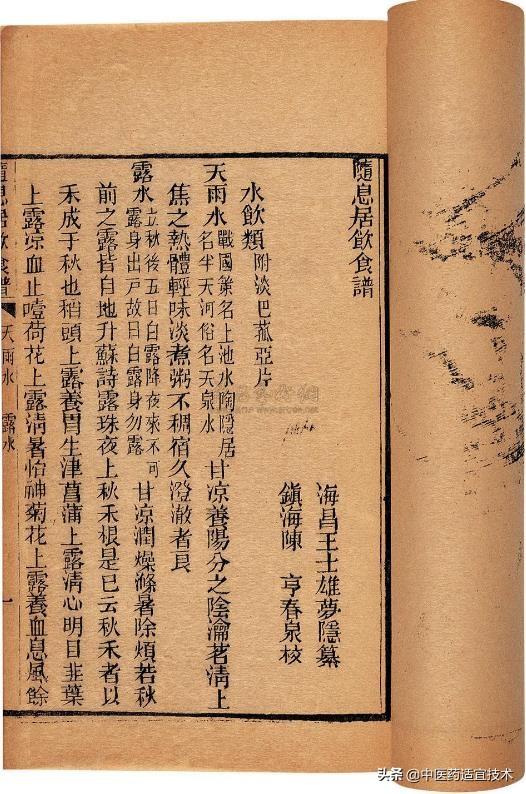 隨息居飲食譜
海昌王士雄夢隱纂
鎮海陳 亨春泉校
水飲類附淡巴菰亞片
天雨水戰國策名上池水陶隱居名半天河俗名天泉水甘涼養陽分之陰瀹茗清上
焦之熱體輕味淡煮粥不稠宿久澄澈者良
露水立秋後五日白露降夜來不可露身出戶故曰白露身勿露甘涼潤燥滌暑除煩若秋
前之露皆自地升蘇詩露珠夜上秋禾根是已云秋禾者以
禾成于秋也稻頭上露養胃生津菖蒲上露清心明目韭葉
上露涼血止噎荷花上露清暑怡神菊花上露養血息風餘
隨息居飲食譜
天雨水 露水
一
头条 @中医药适宜技术